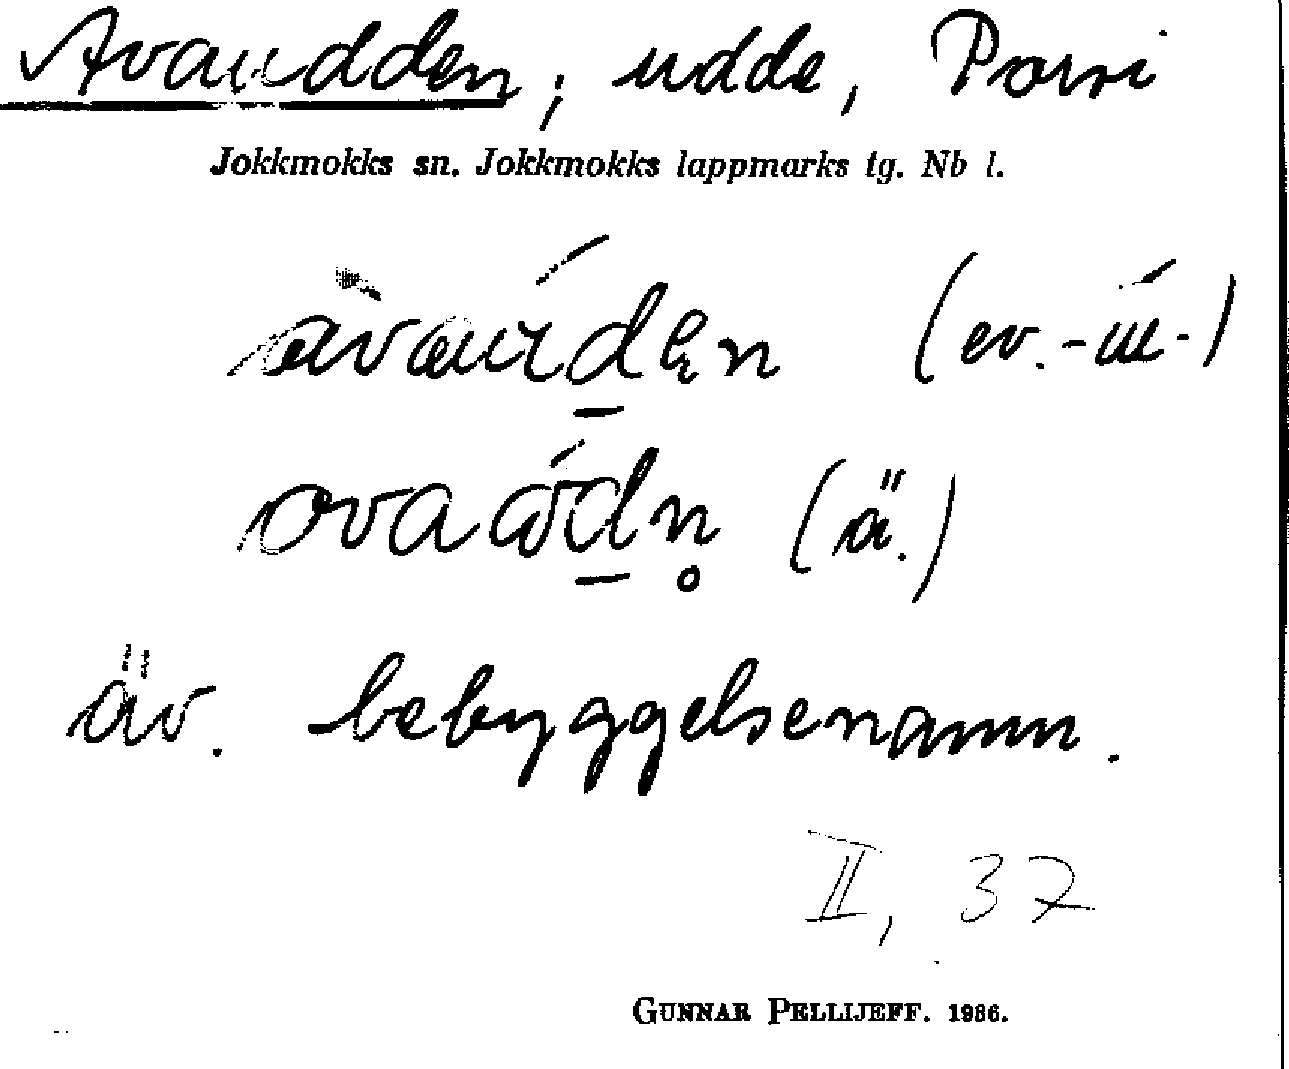 Avaudden, udde, Porsi
Jokkmokks sn. Jokkmokks lappmarks tg. Nb l.
àvaúd̲ęn (ev. -ú-)
(ä.)
äv. bebyggelsenamn.
II, 37
GUNNAR PELLIJEFF. 1986.